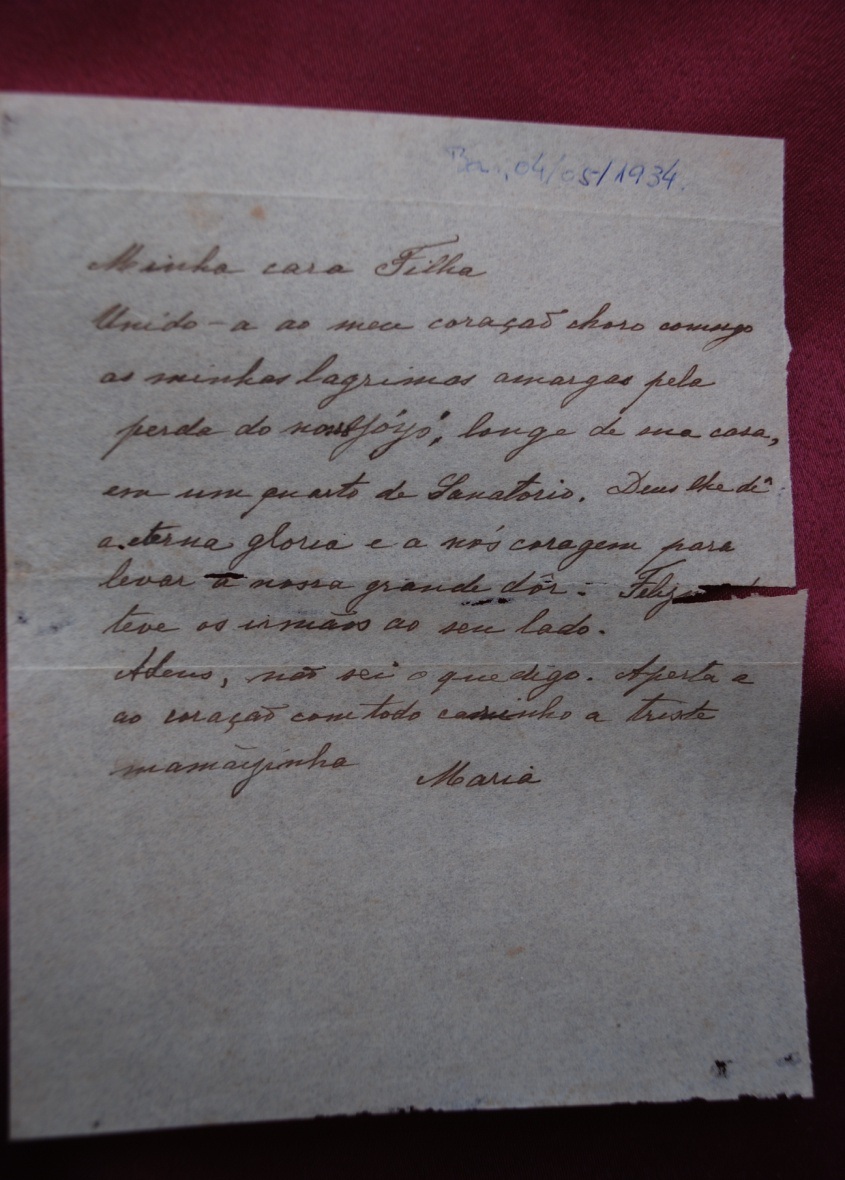 04/05/1934.
Minha cara Filha
Unido-a ao meu coração choro comigo
as minhas lagrimas amargas pela
perda do nosso Jójó, longe de sua casa,
em um quarto de Sanatorio. Deus lhe dê
a eterna gloria e a nós coragem para
levar a nossa grande dôr.
teve os irmãos ao seu lado.
Adeus, não sei o que digo. Aperta a
ao coração com todo carinho a triste
mamãizinha
Maria